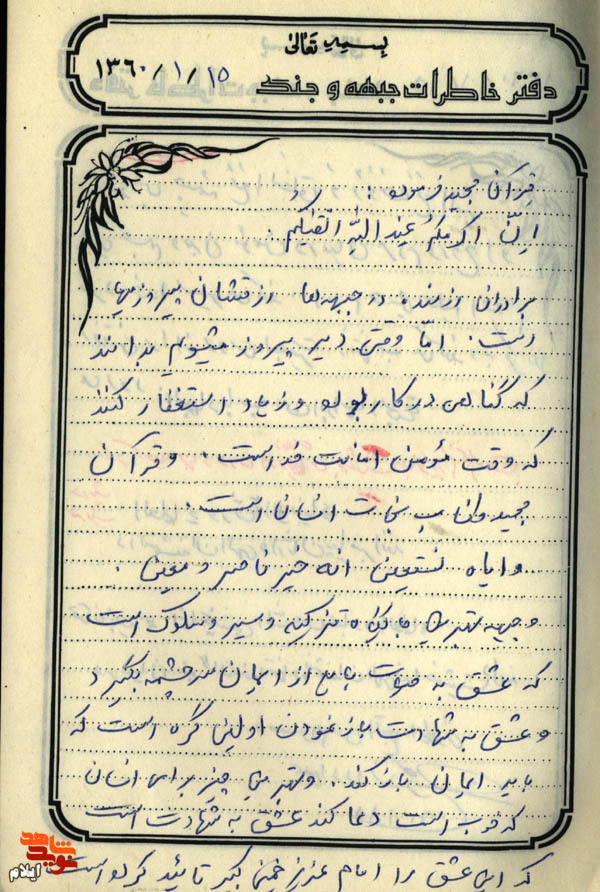 بسمه تعالی
دفتر خاطرات جبهه و جنگ ۱۳۶۰/۱/۱۵
قرآن مجید فرموده:
اِنَّ اکرمکُم عِندَ اللّه اَتقیکُم.
برادران رزمنده در جبهه‌ها
است. امّا وقتی دیر پیروز میشویم بدانند
که گناهی در کار بوده و زیاد استغفار کنند
که وقت مؤمن امانت خداست. و قرآن
مجید نجات انسان است.
و ایاه نستعین انه خیر ناصر و معین.
و جبهه بهترین تزکیه و سیر و سلوک است
که عشق به از ایمان سرچشمه بگیرد
و عشق به شهادت باز نمودن اولین گره است که
باید ایمان باز کند. و بهترین چیز برای انسان
که خوب است دعا کند عشق به شهادت است
که این عشق را امام عزیز خمینی کبیر تائید کرده است
نوید شاهد
ایلام